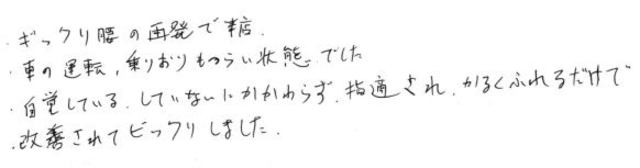 ・ギックリ腰の再発で来店.
・車の運転,乗りおりもつらい状態.でした
・自覚している.していないにかかわらず.指適され.かるくふれるだけで
・改善されてビックリしました.